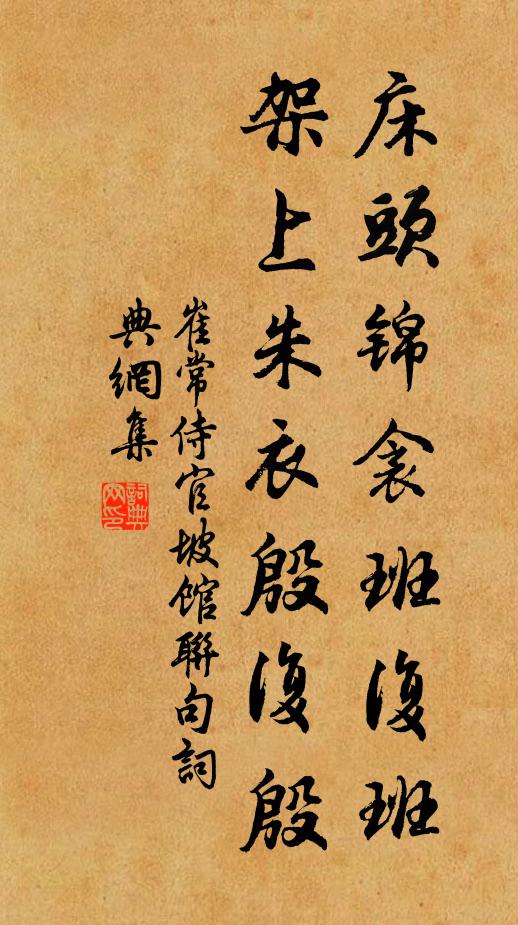 床頭錦衾班復班
架上朱衣殷復殷
崔常侍官坡館聯句詞
典網集
詞典
网印